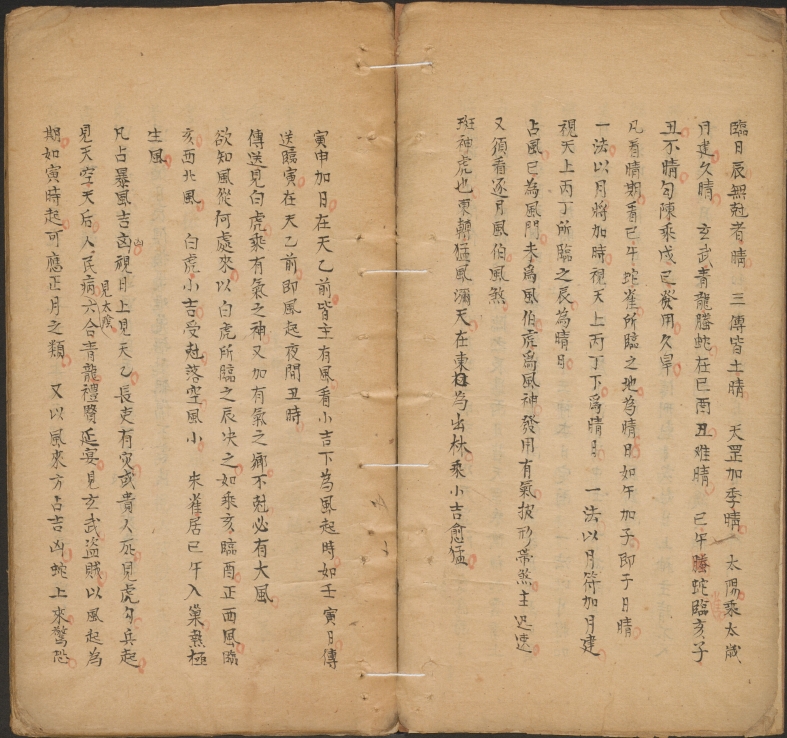 臨日辰無尅者晴　三傳皆土晴　天罡加季晴　太陽乘太歲
月建久晴　玄武青龍螣蛇在巳酉丑难晴　巳午螣蛇臨亥子
丑不晴勾陳乘戊己發用久旱
凡看晴期看巳午蛇雀所臨之地為晴日如午加子即子日晴
一法以月將加時視天上丙丁下為晴日　一法以月符加月建
視天上丙丁所臨之辰為晴日
占風巳為風門未為風伯虎為風神發用有氣披刑帶煞主迅速
又須看逐月風伯風煞
班神虎也東轉猛風瀰天在東為出林乘小吉愈猛
寅申加日在天乙前皆主有風看小吉下為風起時如壬寅日傳
送臨寅在天乙前即風起夜間丑時
傳送見白虎乘有氣之神又加有氣之鄉不尅必有大風
欲知風從何處來以白虎所臨之辰决之如乘亥臨酉正西風臨
亥西北風　白虎小吉受尅落空風小　朱雀居巳午入巢無極
生風
凡占暴風吉凶視日上見天乙長吏有灾或貴人死見虎勾兵起
見太陰
見天空天后人民病六合青龍禮醫延宴見玄武盜賊以風起為
期如寅時起可應正月之類　又以風來方占吉凶蛇上來驚恐